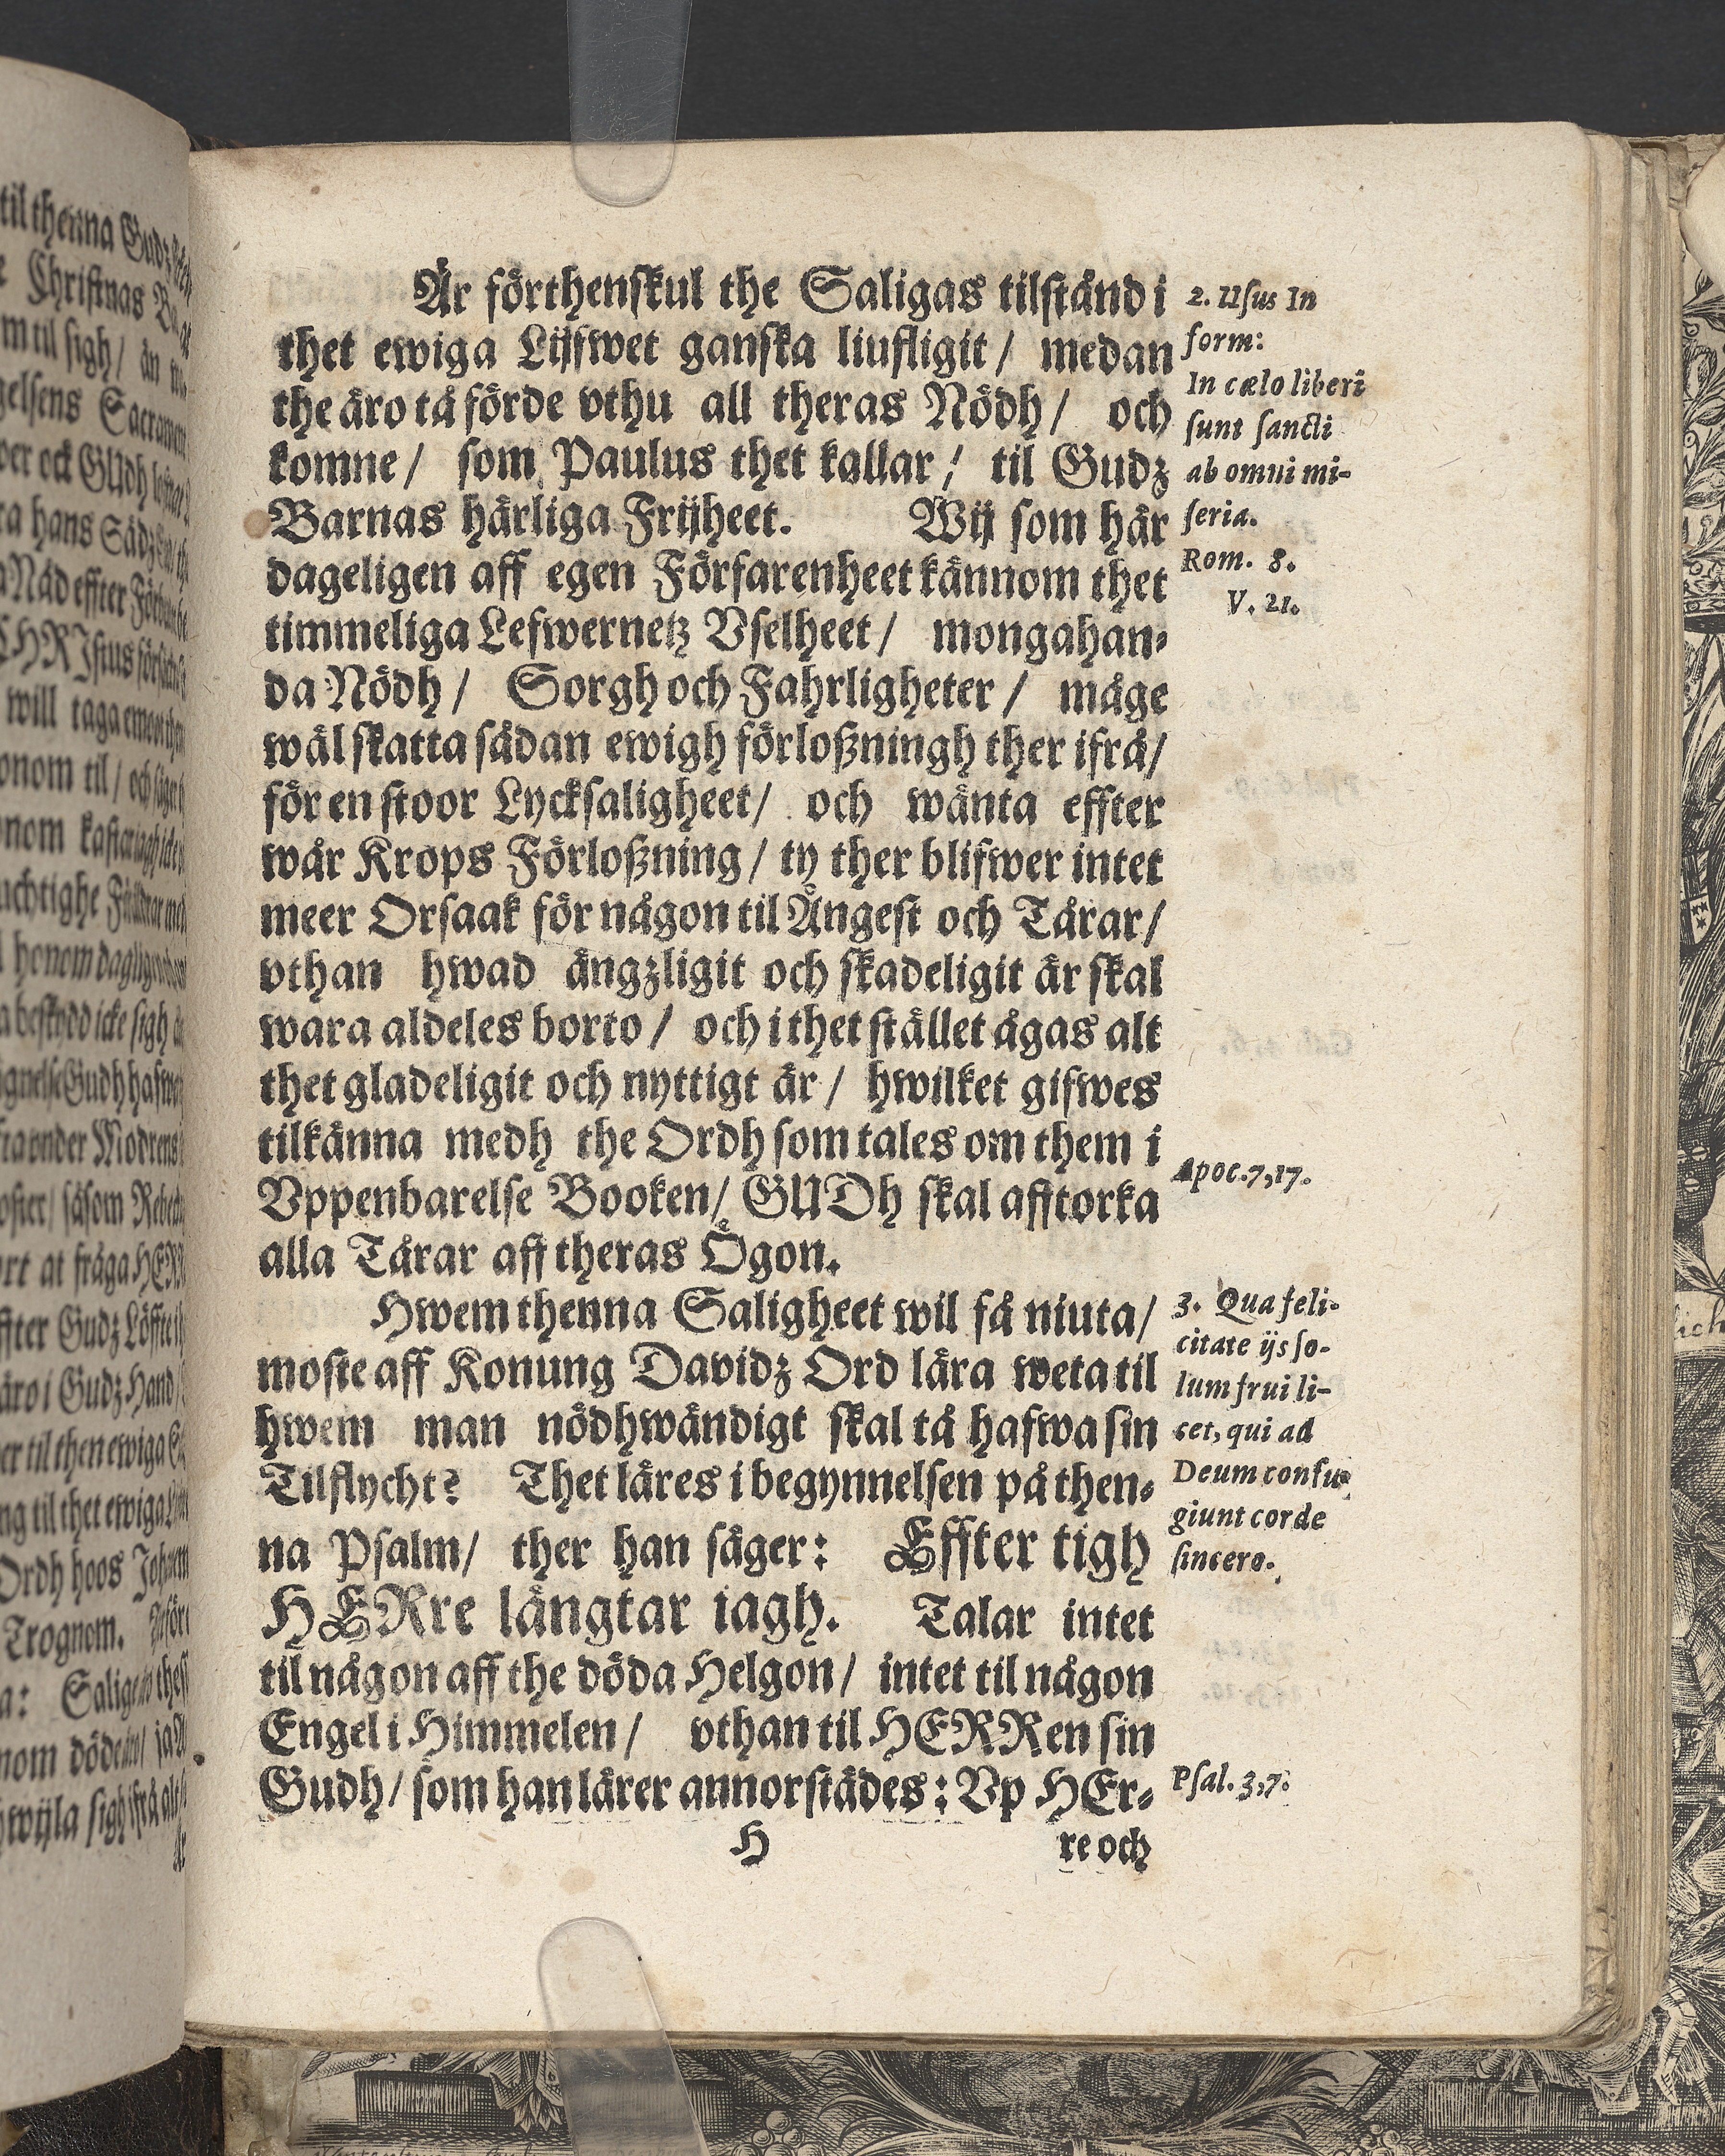 Är förthenskul the Saligas tilständ i
thet ewiga Lijfwet ganska liufligit / medan
the äro tå förde vthu all theras Nödh / och
komne / som Paulus thet kallar / til Gudz
Barnas härliga Frijheet. Wij som här
dageligen aff egen Förfarenheet kännom thet
timmeliga Lefwernetz Vselheet / mongahan-
da Nödh / Sorgh och Fahrligheter / måge
wäl skatta sådan ewigh förloßningh ther ifrå /
för en stoor Lycksaligheet / och wänta effter
wår Krops Förloßning / ty ther blifwer intet
meer Orsaak för någon til Ångest och Tårar /
vthan hwad ängzligit och skadeligit är skal
wara aldeles borto / och i thet stället ägas alt
thet gladeligit och nyttigt är / hwilket gifwes
tilkänna medh the Ordh som tales om them i
Vppenbarelse Booken / GUDh skal afftorka
alla Tårar aff theras Ögon.
Hwem thenna Saligheet wil få niuta /
moste aff Konung Davidz Ord lära weta til
hwem man nödhwändigt skal tå hafwa sin
Tilflycht? Thet läres i begynnelsen på then-
na Psalm / ther han säger: Effter tigh
HERre längtar iagh. Talar intet
til någon aff the döda Helgon / intet til någon
Engel i Himmelen / vthan til HERRen sin
Gudh / som han lärer annorstädes: Vp HEr-
H re och
2. Usus In
form:
In cælo liberi
sunt sancti
ab omni mi-
seria.
Rom. 8.
V. 21.
Apoc. 7,17.
3. Qua feli-
citate ijs so-
lum frui li-
cet, qui ad
Deum confu-
giunt corde
sincero.
Psal. 3,7.